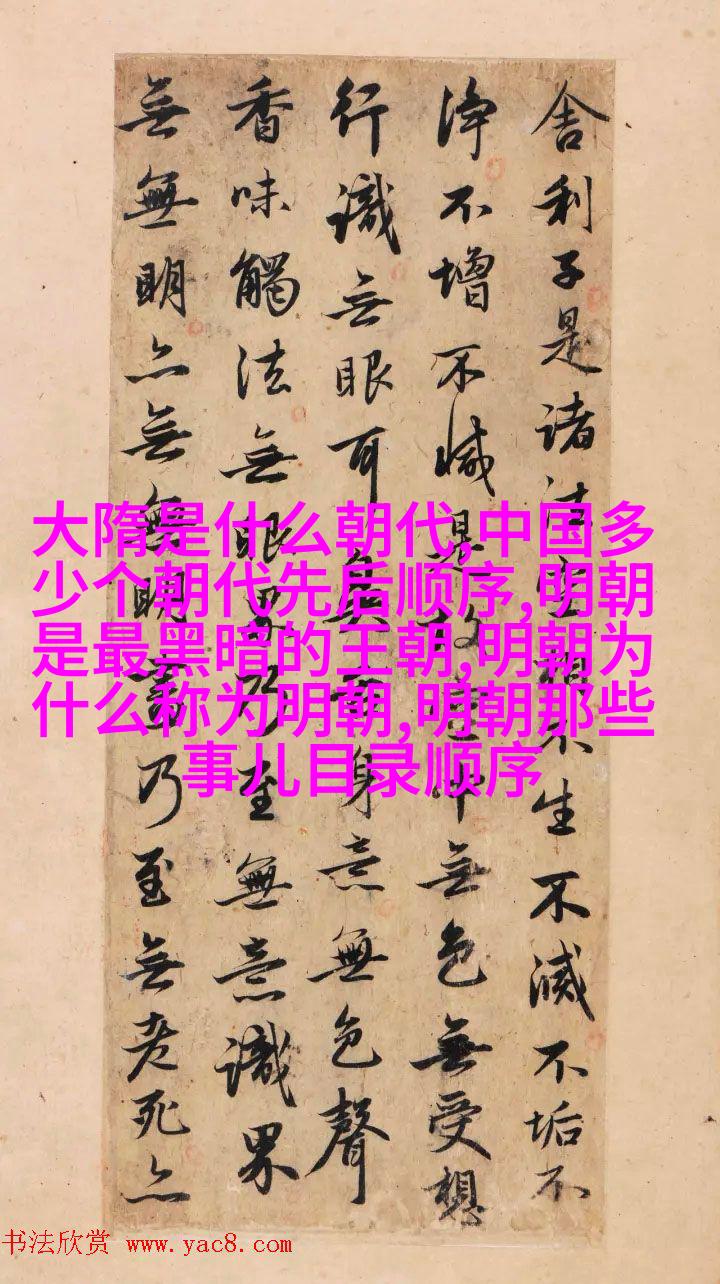 舍利子是諸法空相不生不滅不垢不
淨不增不減是故空中無色無受想
行識无眼耳鼻舌身意無色聲
香味觸法無眼界乃至無意識界
無無明亦無無明盡乃至無老死亦
大隋是什么朝代,中国多
少个朝代先后顺序,明朝
是最黑暗的王朝,明朝为
什么称为明朝,明朝那些
事儿目录顺序
书法欣赏 www.yac8.com